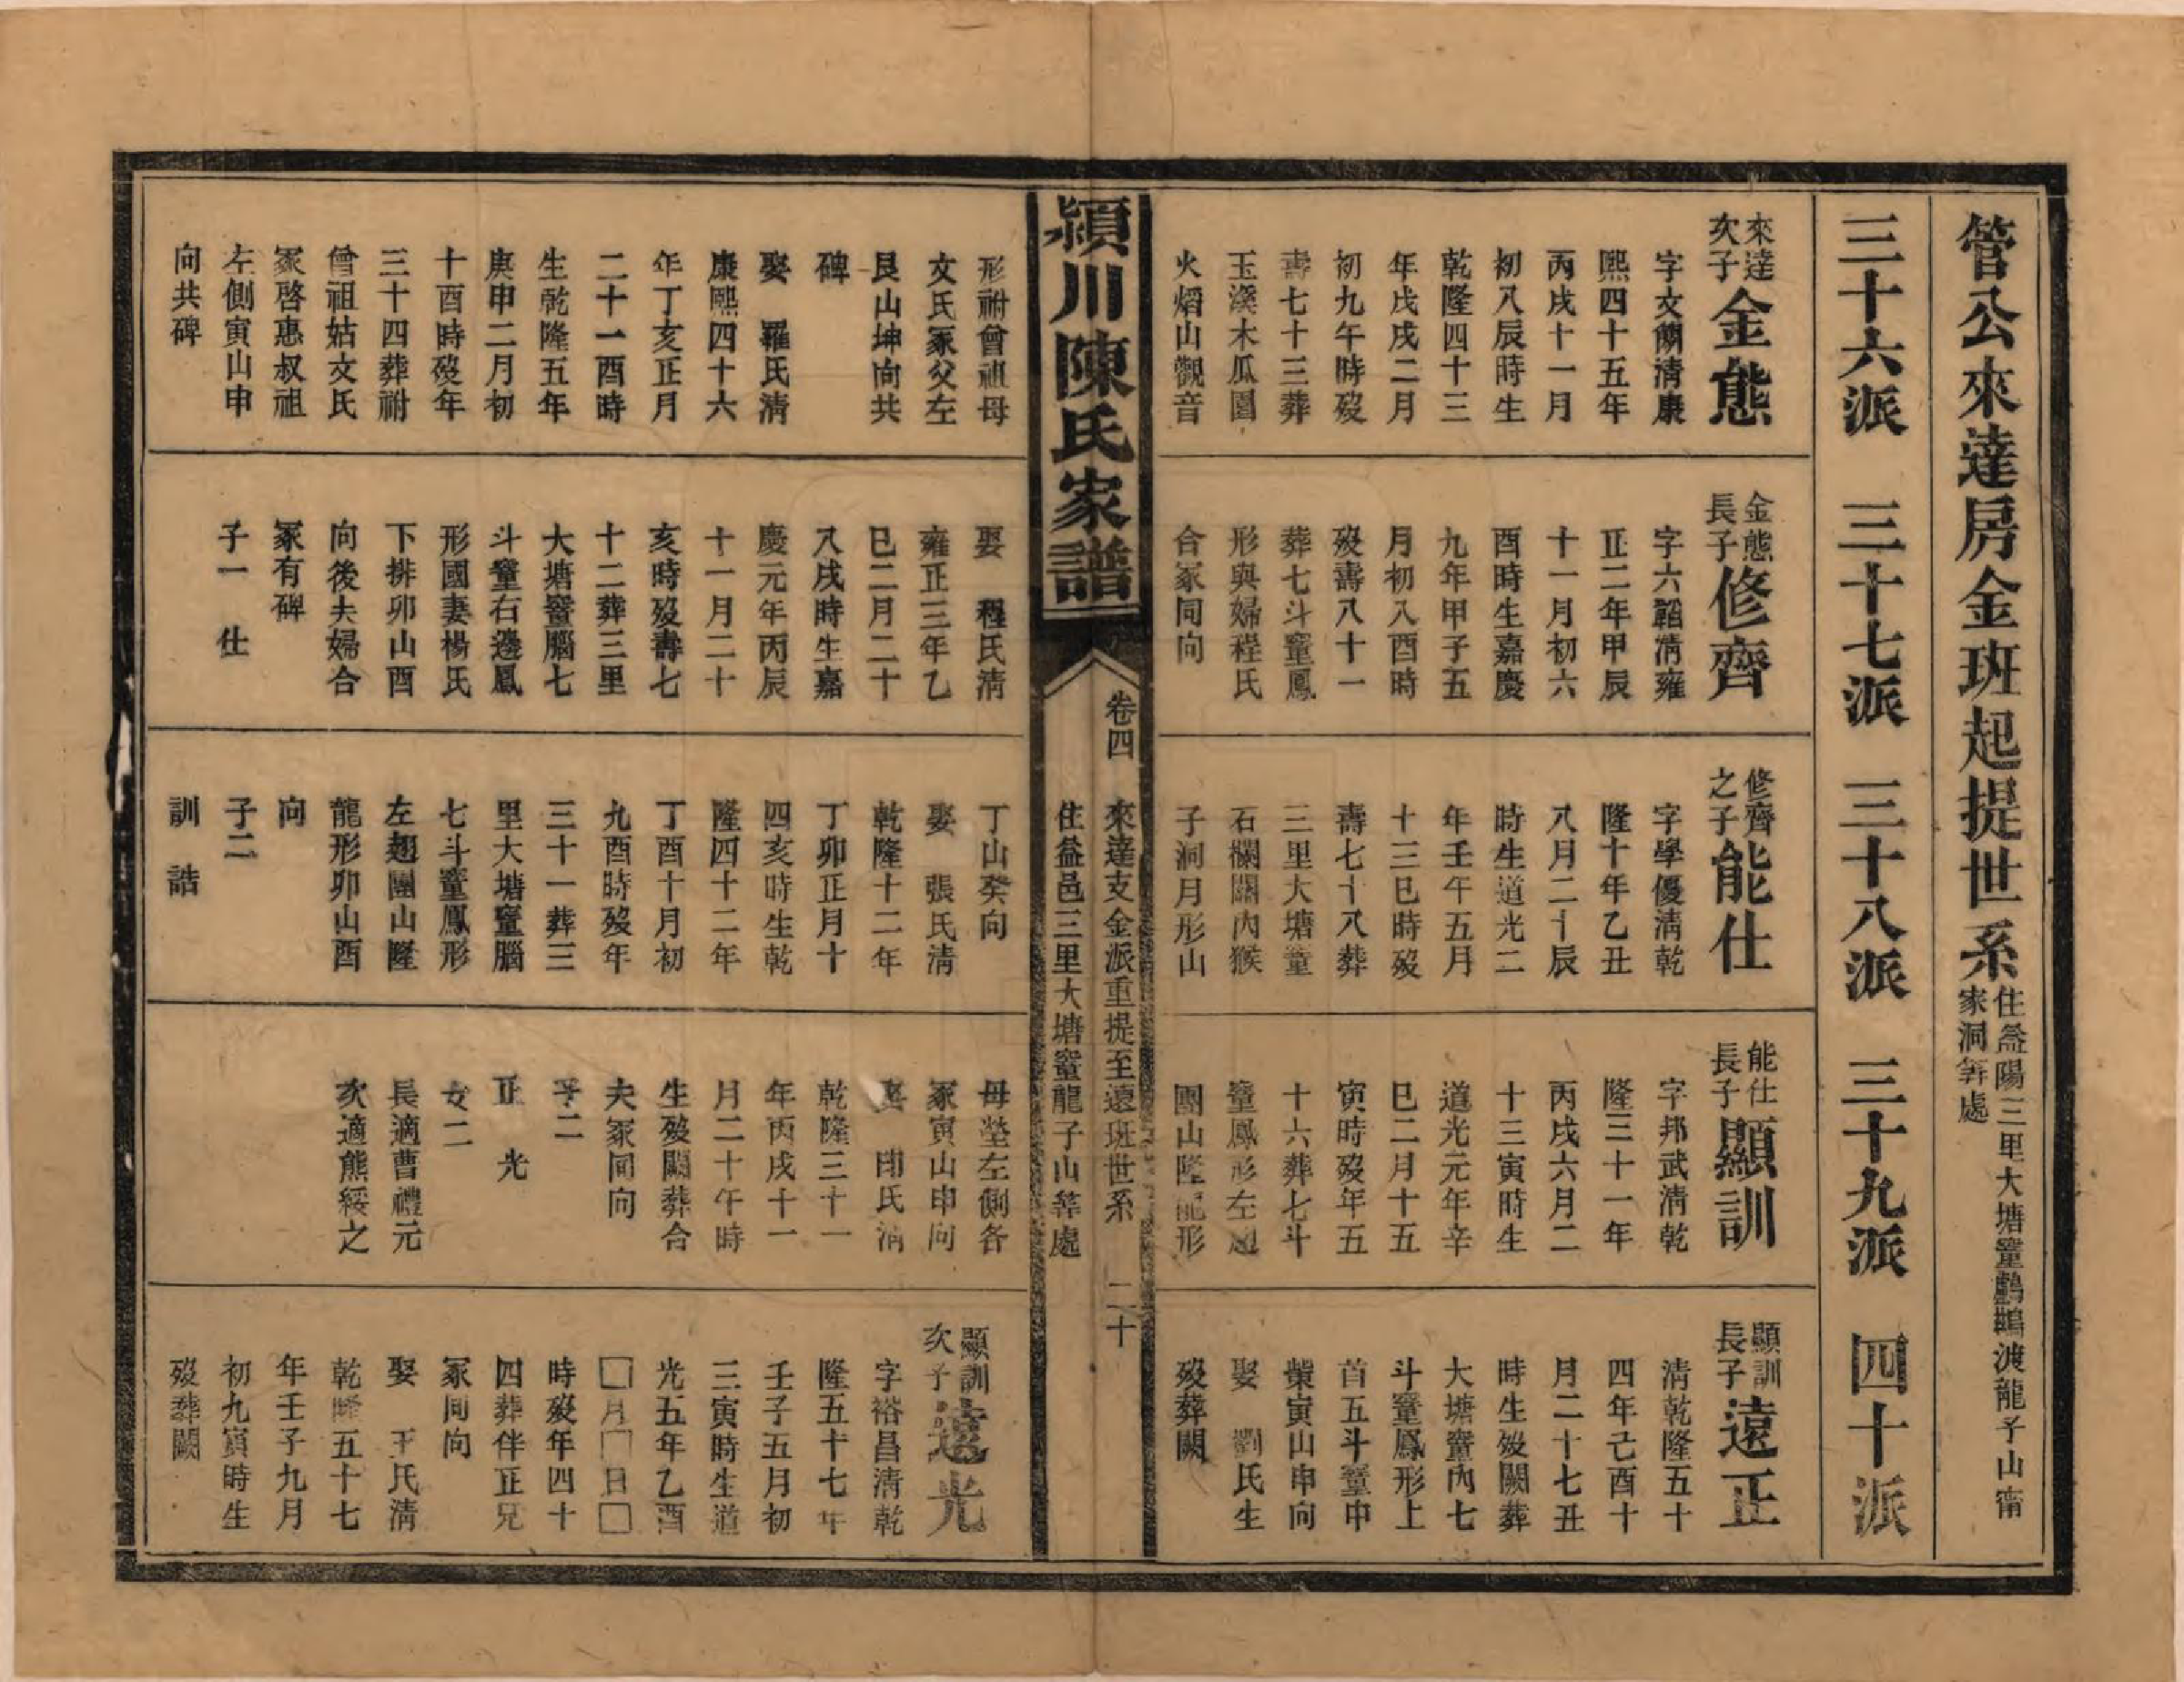 管公來達房金班起提世系
住益陽三里大塘鸕鶿渡龍子山甯
家洞等處
三十六派 三十七派 三十八派 三十九派 四十派
來達
次子
金態
字文關清康
熙四十五年
丙戌十一月
初八辰時生
乾隆四十三
年戊戌二月
初九午時歿
壽七十三葬
玉溪木瓜園
火熖山觀音
形祔曾祖母
文氏冢父左
艮山坤向共
碑
娶 羅氏清
康熙四十六
年丁亥正月
二十一酉時
生乾隆五年
庚申二月初
十酉時歿年
三十四葬祔
曾祖姑文氏
冢啓惠叔祖
左側寅山申
向共碑
金態
長子
修齊
字六韜清雍
正二年甲辰
十一月初六
酉時生嘉慶
九年甲子五
月初八酉時
歿壽八十一
葬七斗鳳
形與婦程氏
合冢同向
娶 程氏清
雍正三年乙
巳二月二十
八戌時生嘉
慶元年丙辰
十一月二十
亥時歿壽七
十二葬三里
大塘腦七
斗右邊鳳
形國妻楊氏
下排卯山酉
向後夫婦合
冢有碑
子一 仕
修齊
之子
能仕
字學優清乾
隆十年乙丑
八月二十辰
時生道光二
年壬午五月
十三巳時歿
壽七十八葬
三里大塘
石欄關內猴
子洞月形山
丁山癸向
娶 張氏清
乾隆十二年
丁卯正月十
四亥時生乾
隆四十二年
丁酉十月初
九酉時歿年
三十一葬三
里大塘腦
七斗鳳形
左翅團山隆
龍形卯山酉
向
子二
訓 誥
能仕
長子
顯訓
字邦武清乾
隆三十一年
丙戌六月二
十三寅時生
道光元年辛
巳二月十五
寅時歿年五
十六葬七斗
鳳形左翅
團山隆龍形
母塋左側各
冢寅山申向
娶 印氏清
乾隆三十一
年丙戌十一
月二十午時
生歿闕葬合
夫冢同向
子二
正 光
女二
長適曹禮元
次適熊綏之
顯訓
長子
遠正
清乾隆五十
四年己酉十
月二十七丑
時生歿闕葬
大塘內七
斗鳳形上
首五斗中
業寅山申向
娶 劉氏生
歿葬闕
顯訓
次子
遠光
字裕昌清乾
隆五十七年
壬子五月初
三寅時生道
光五年乙酉
□月□日□
時歿年四十
四葬伴正兄
冢同向
娶 王氏清
乾隆五十七
年壬子九月
初九寅時生
歿葬闕
潁川陳氏家譜
卷四
來達支金派重提至遠班世系
住益邑三里大塘龍子山等處
二十